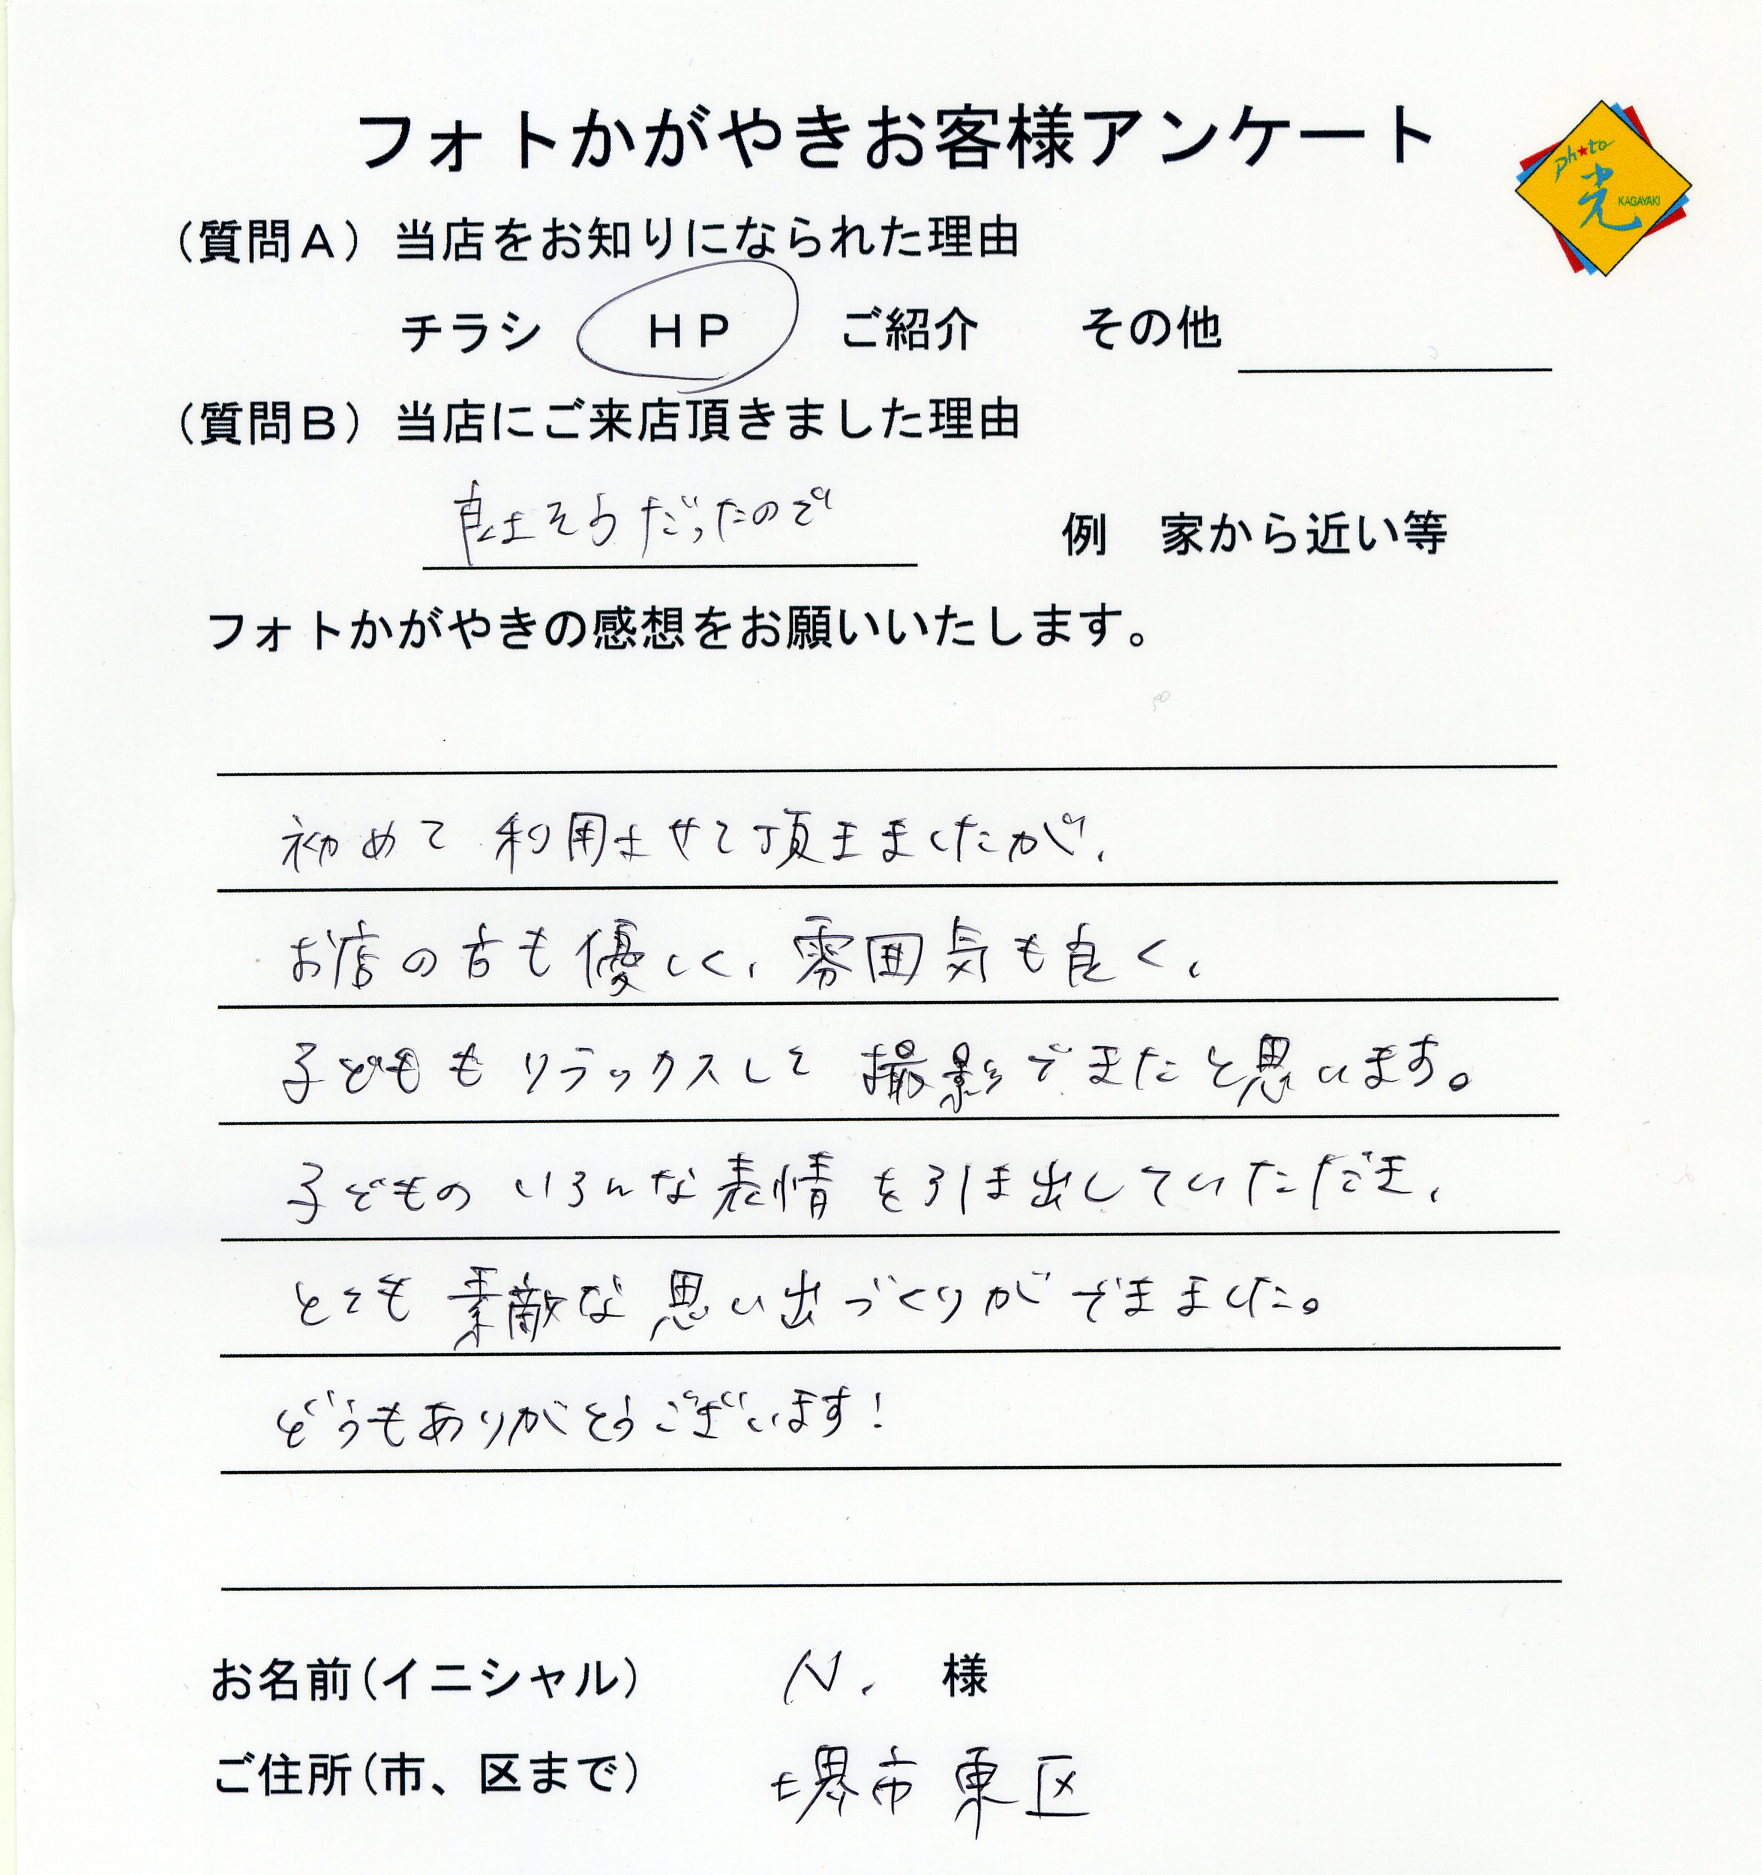 フォトかがやきお客様アンケート
photo
光
KAGAYAKI
(質問A) 当店をお知りになられた理由
チラシ HP ご紹介 その他
(質問B) 当店にご来店頂きました理由
良さそうだったので 例 家から近い等
フォトかがやきの感想をお願いいたします。
初めて利用させて頂きましたが、
お店の方も優しく、雰囲気も良く、
子どももリラックスして撮影できたと思います。
子どものいろんな表情を引き出していただき、
とても素敵な思い出づくりができました。
どうもありがとうございます!
お名前(イニシャル) N. 様
ご住所(市、区まで) 堺市東区